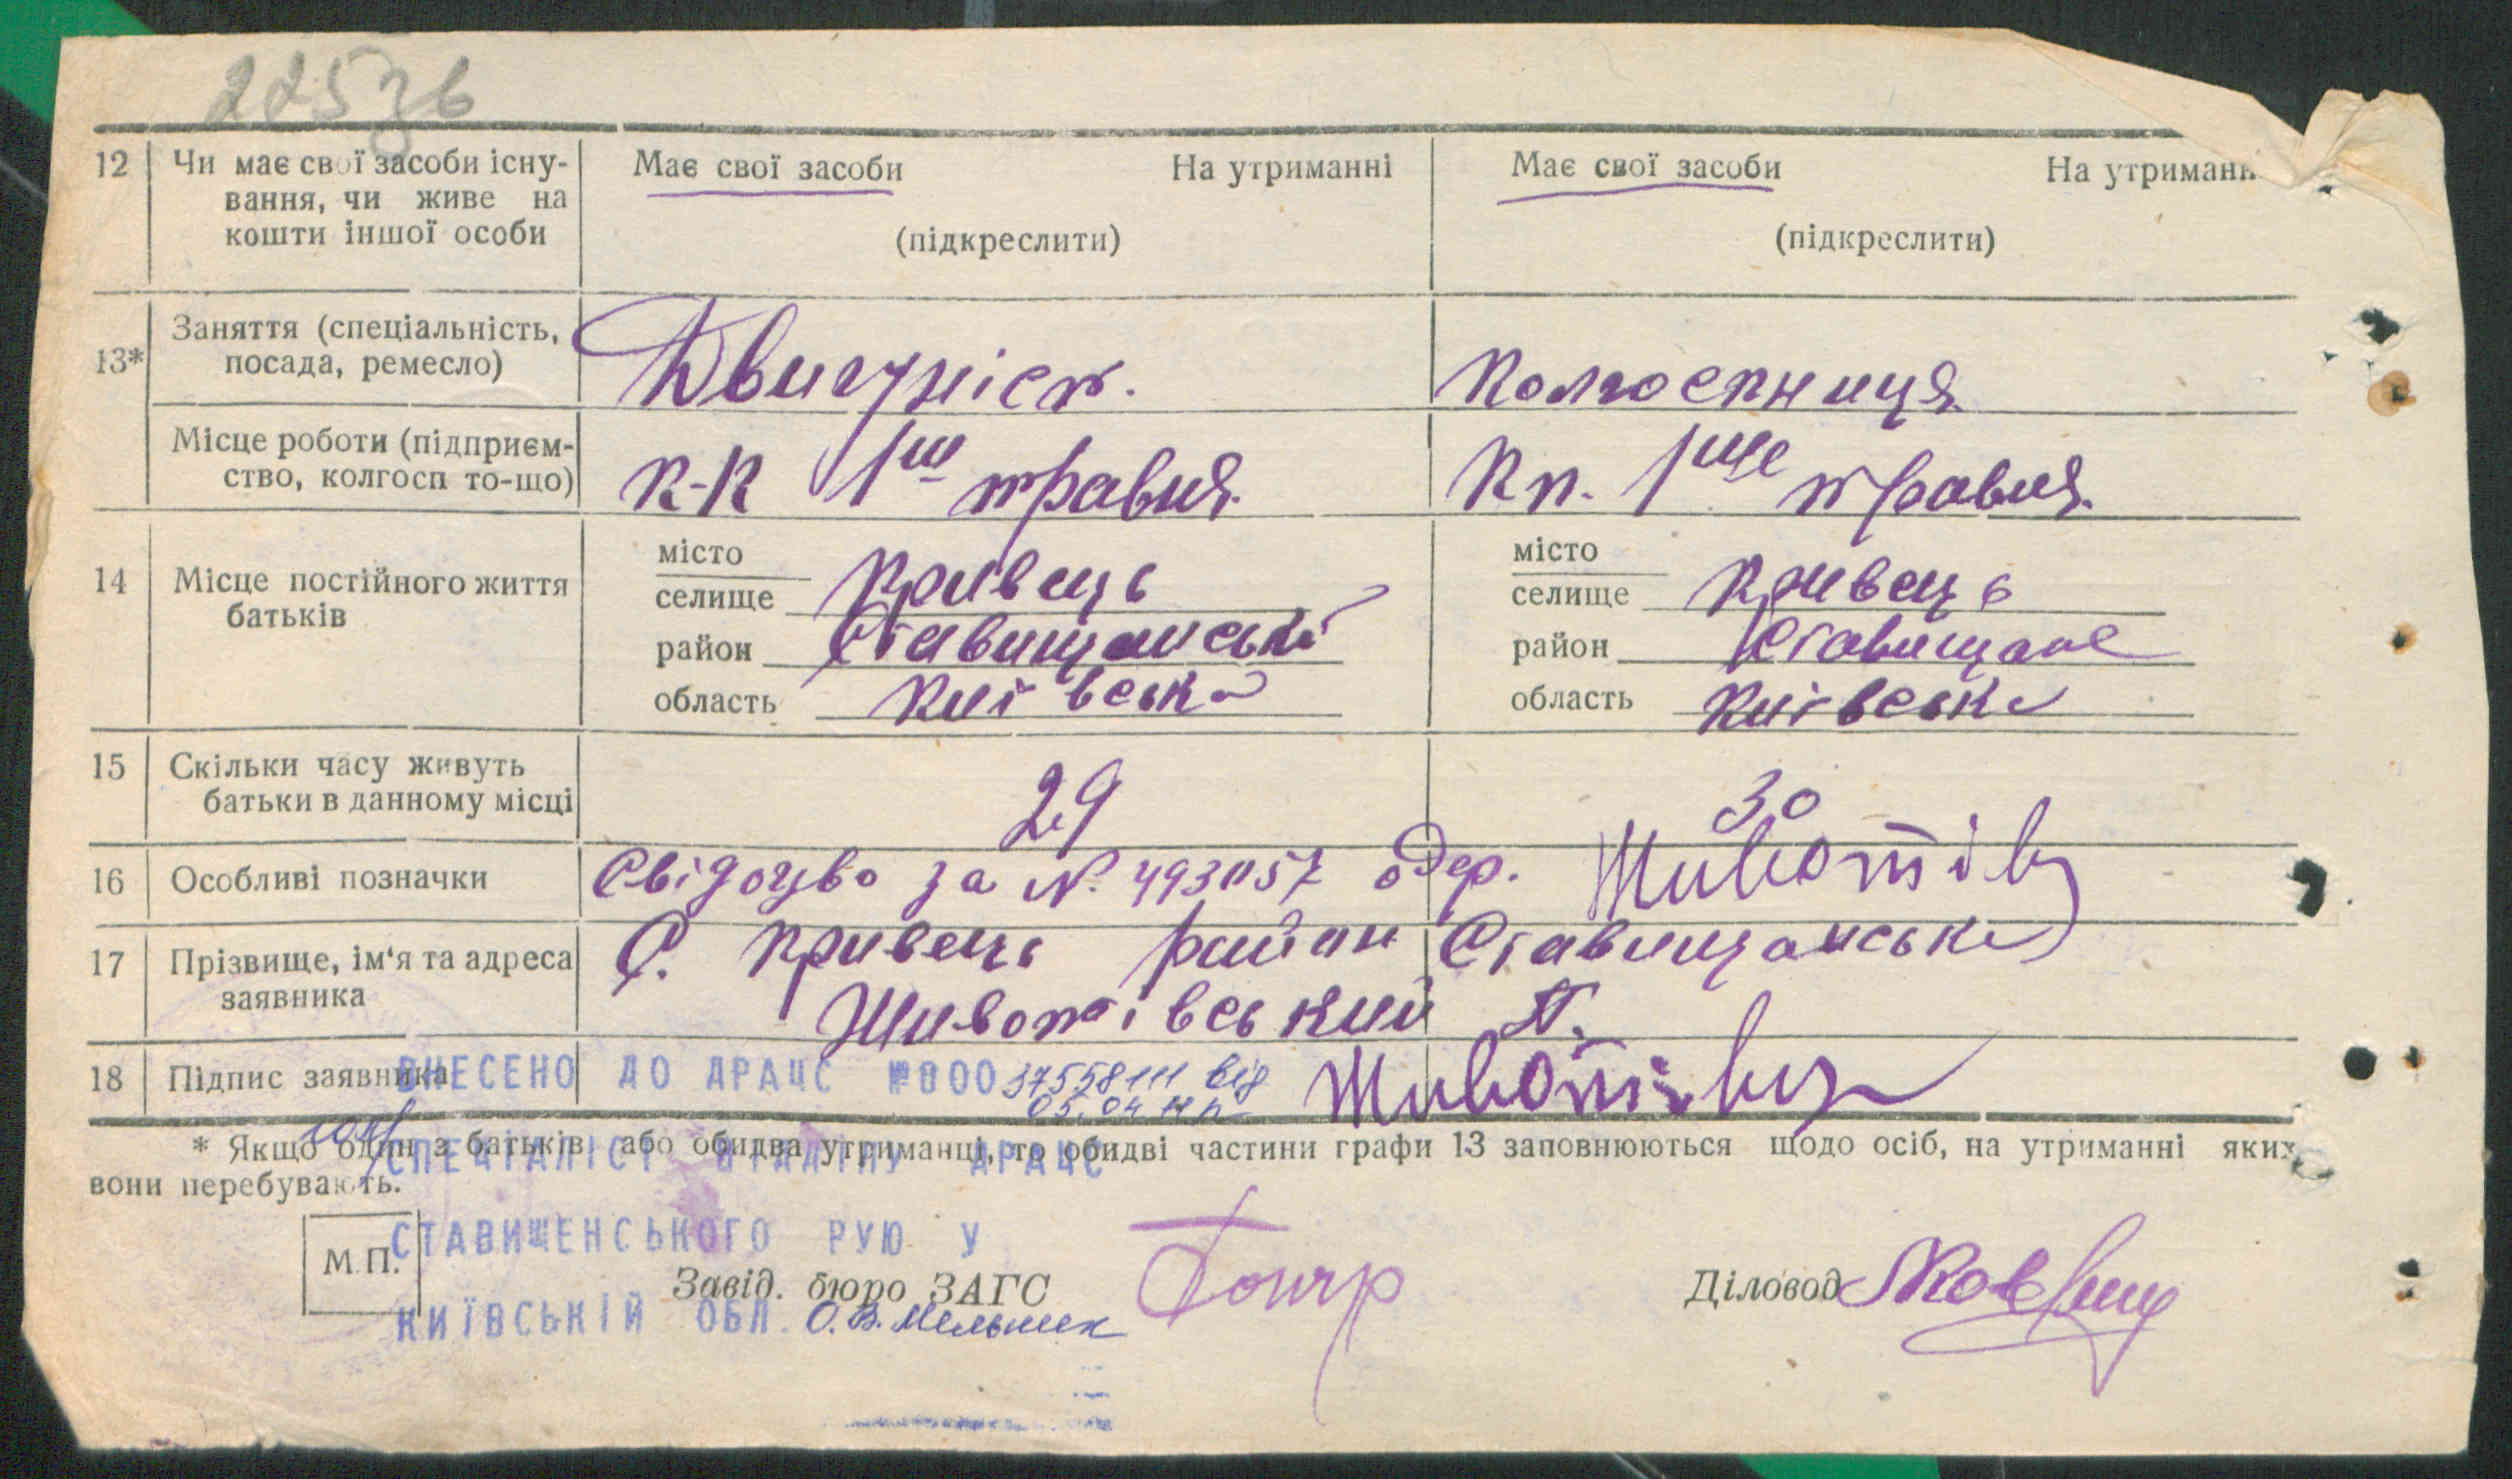 225зв
12 Чи має свої засоби існу- Має свої засоби На утриманні Має свої засоби На утриманн
вання, чи живе на
кошти іншої особи (підкреслити) (підкреслити)
13* Заняття (спеціальність,
посада, ремесло) Двигуніст. Колгоспниця
Місце роботи (підприєм-
ство, колгосп то-що) К-К 1ш травня. Кп. 1ще травня.
14 Місце постійного життя
батьків
місто
селище Кривець
район Ставищанськ
область Київська
місто
селище Кривець
район Ставищанс
область Київська
15 Скільки часу живуть
батьки в данному місці 29 30
16 Особливі позначки Свідоцво за №. 493057 одер. Животів
17 Прізвище, ім'я та адреса С. Кривець район Ставищанськ
заявника Животівський П.
18 Підпис заявника
ВНЕСЕНО ДО ДРАЦС №000 37558111 від
05.04
* Якщо один з батьків або обидва утриманці, то обидві частини графи 13 заповнюються щодо осіб, на утриманні яких
вони перебувають.
СПЕЦІАЛІСТ ВІДДІЛУ ДРАЦС
СТАВИЩЕНСЬКОГО РУЮ У
М.П.
Завід. бюро ЗАГС Діловод
КИЇВСЬКІЙ ОБЛ. О.В. Мельник